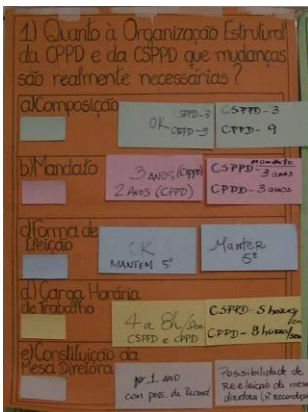 1) Quanto à Organização Estrutural
da CPPD e da CSPPD que mudanças
são realmente necessárias?
a) Composição
OK CSPPD-3
CPPD-9
CSPPD-3
CPPD-9
b) Mandato
3 ANOS (CSPPD)
2 ANOS (CPPD)
Mandato
CSPPD-3 anos
CPPD-3 anos
c) Forma de
Eleição
OK
MANTEM 5º
Manter
5º
d) Carga Horária
de Trabalho
4 a 8h/sem
CSPPD e CPPD
CSPPD-5 horas
CPPD-8 horas/sem
e) Constituição da
Mesa Diretora
p/ 1 ANO
com pos. de Recond
Possibilidade de
Reeleição da mesa
diretora (1ª Recondu